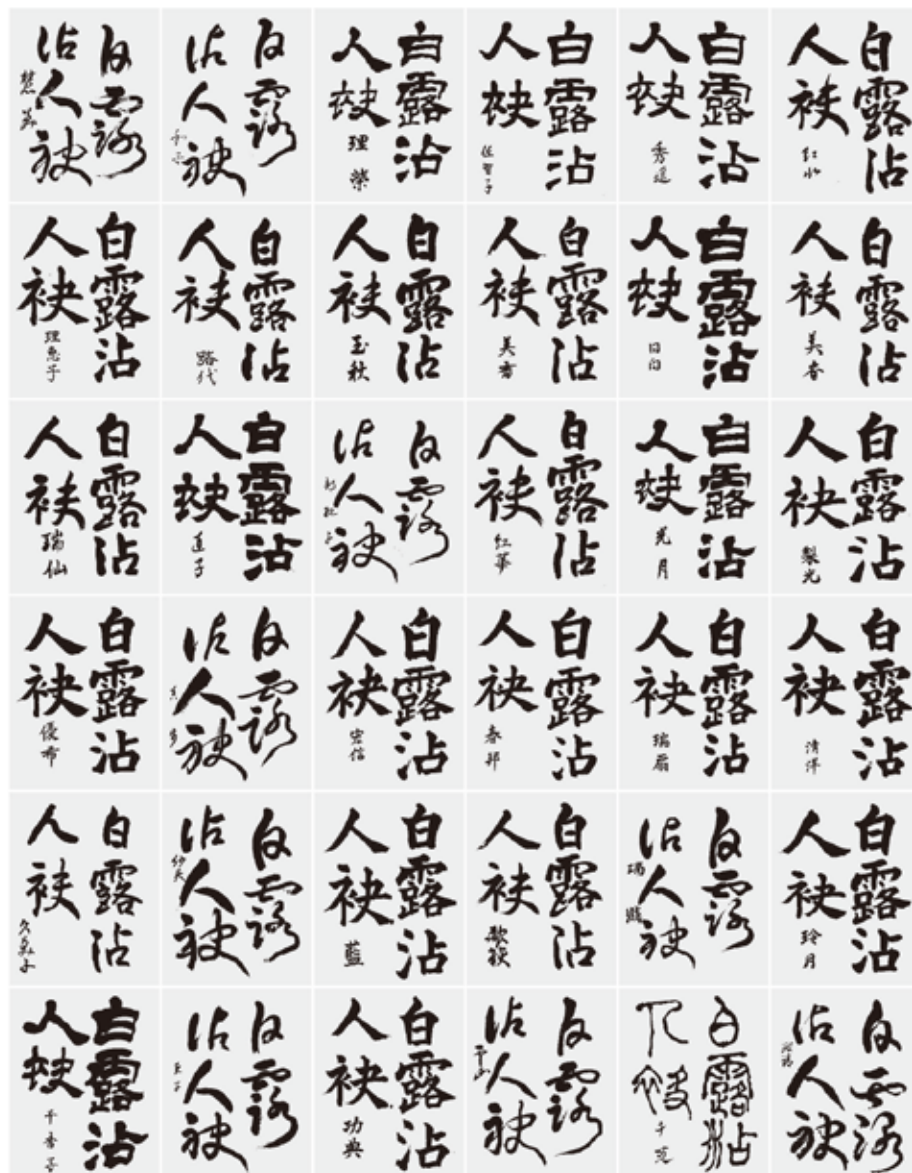 白露沾
人袂
白露沾
人袂
白露沾
人袂
理榮
白露沾
人袂
佐智子
白露沾
人袂
白露沾
人袂
紅水
白露沾
人袂
理恵子
白露沾
人袂
路代
白露沾
人袂
玉秋
白露沾
人袂
美香
白露沾
人袂
日向
白露沾
人袂
美春
白露沾
人袂
瑞仙
白露沾
人袂
直子
白露沾
人袂
白露沾
人袂
紅華
白露沾
人袂
光月
白露沾
人袂
梨光
白露沾
人袂
優希
白露沾
人袂
白露沾
人袂
宏信
白露沾
人袂
春邦
白露沾
人袂
瑞扇
白露沾
人袂
白露沾
人袂
久美子
白露沾
人袂
白露沾
人袂
藍
白露沾
人袂
白露沾
人袂
白露沾
人袂
玲月
白露沾
人袂
千香子
白露沾
人袂
白露沾
人袂
功典
白露沾
人袂
白露沾
人袂
白露沾
人袂